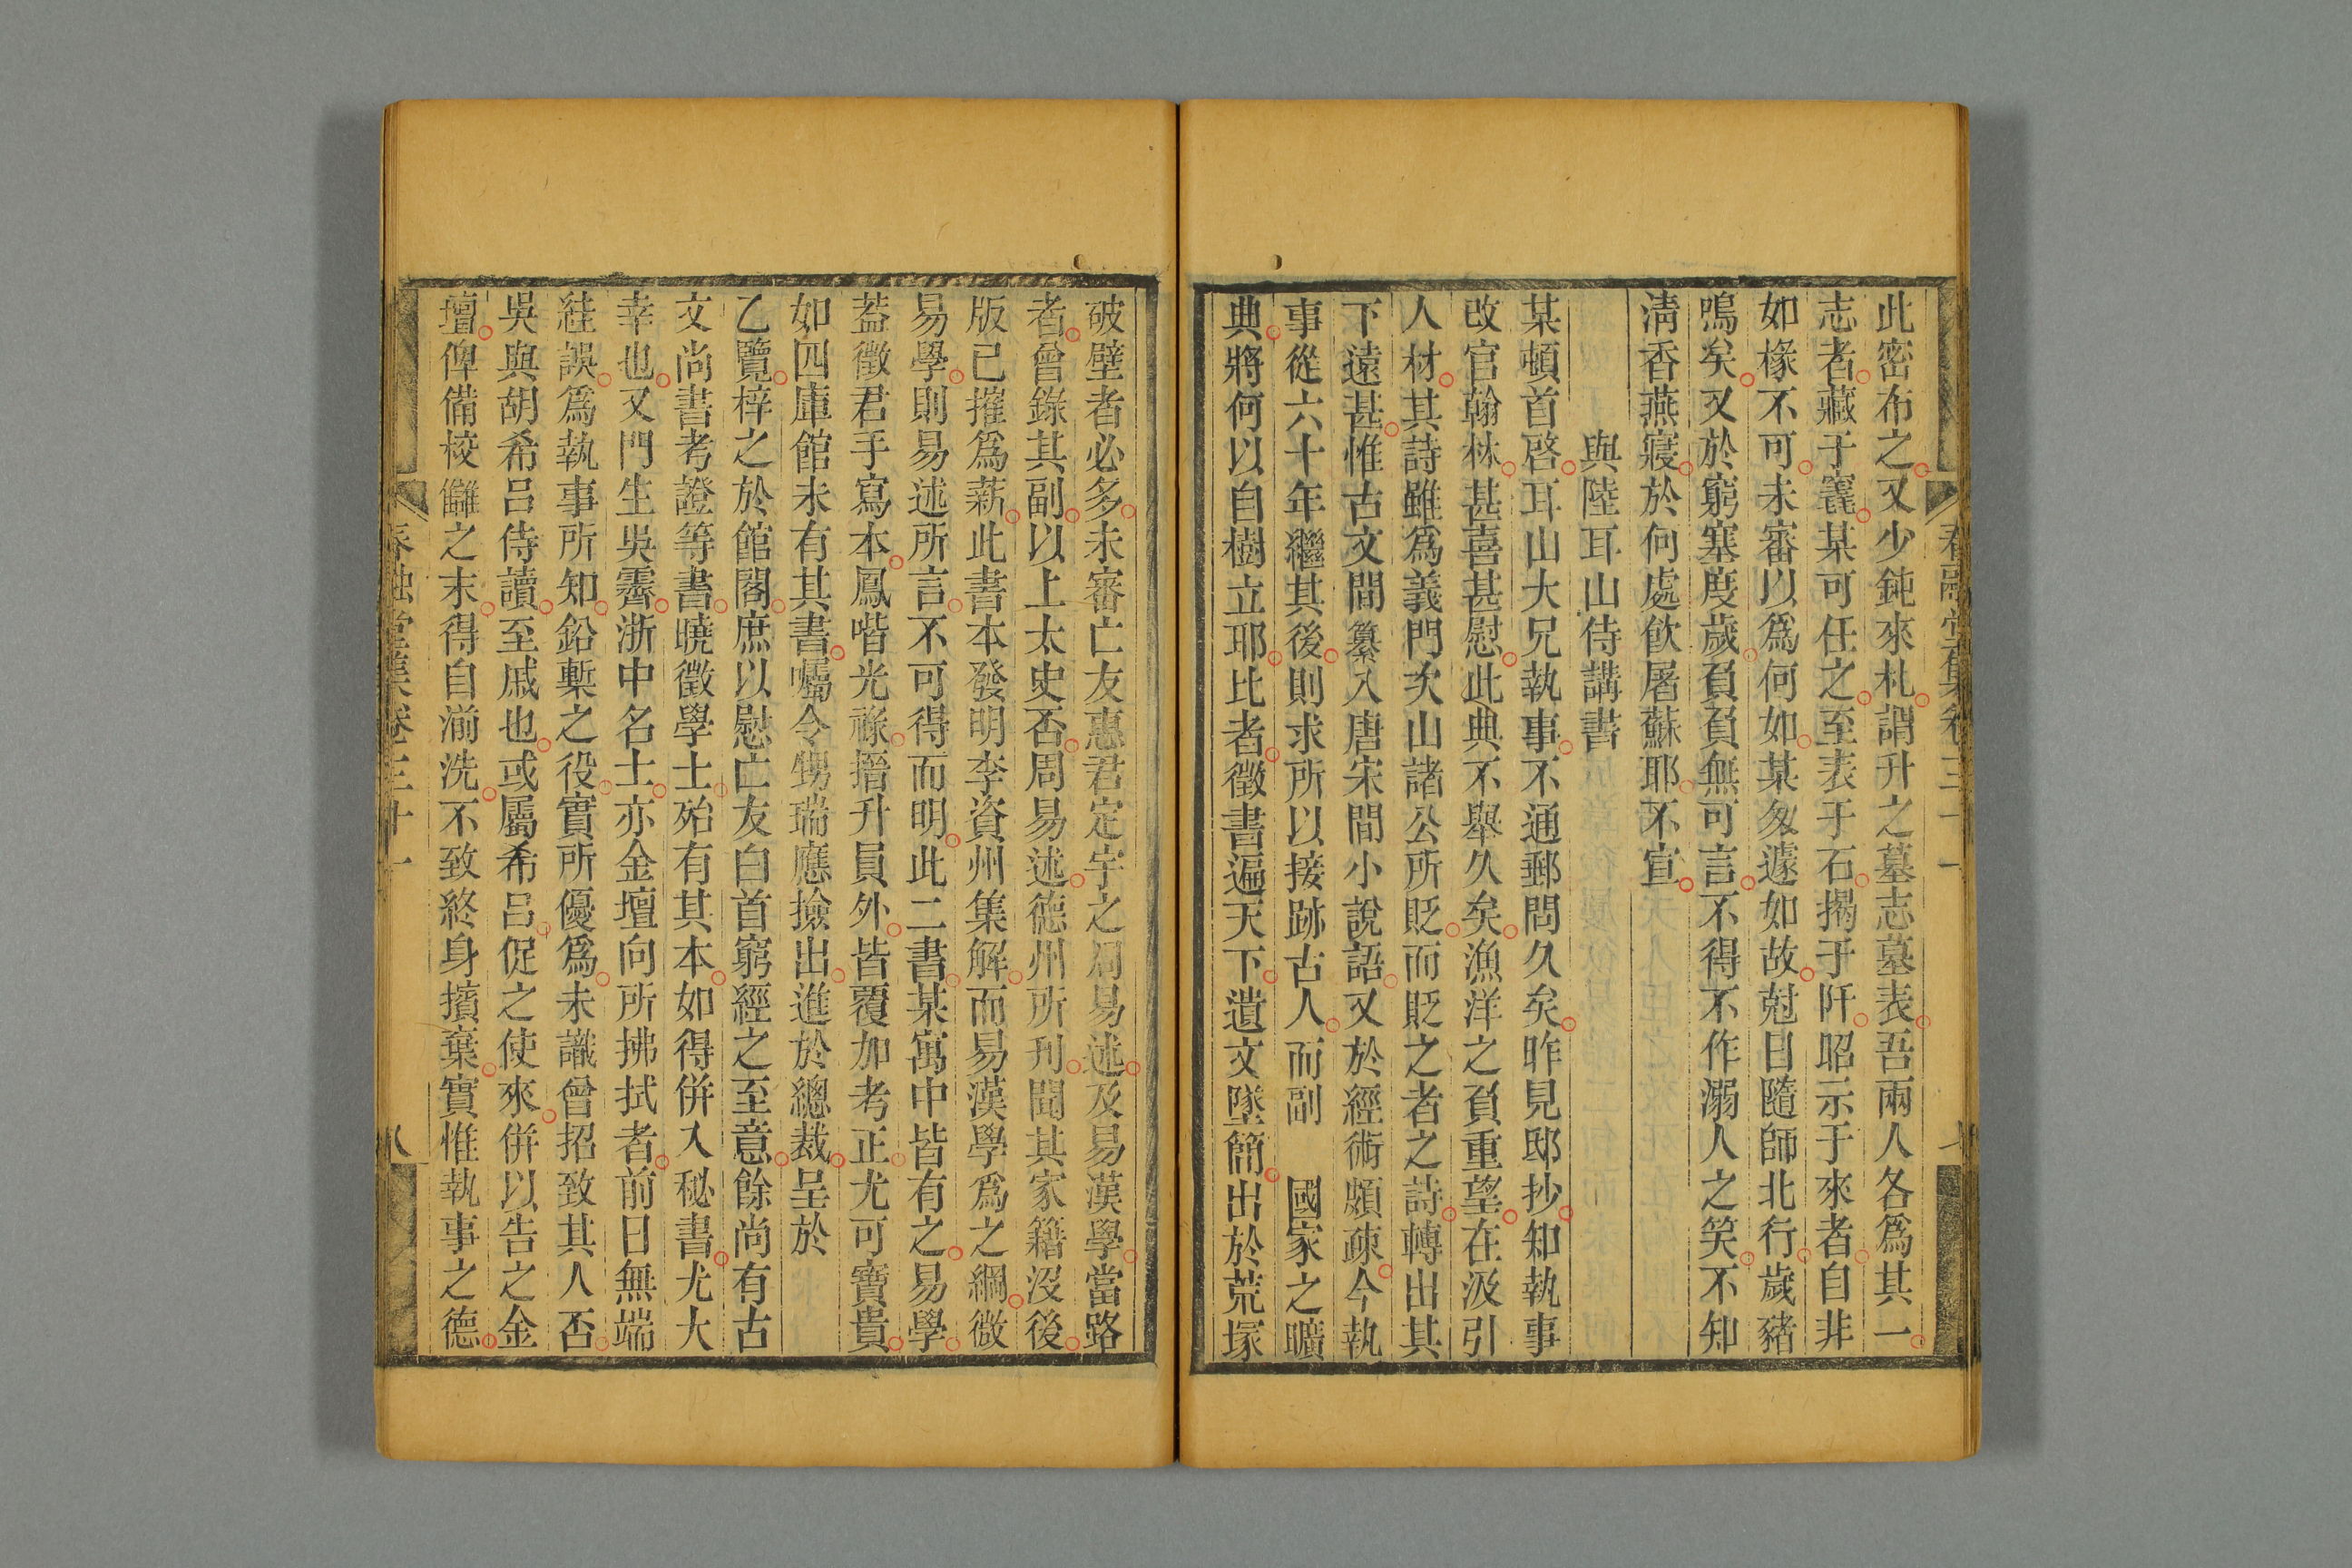 此密布之又少鈍來札謂升之墓志墓表吾兩人各爲其一
志者藏于窆某可任之至表于石揭于阡昭示于來者自非
如椽不可未審以爲何如某匆遽如故尅日隨師北行歲豬
鳴矣又於窮塞度歲負負無可言不得不作溺人之笑不知
淸香燕寢於何處飮屠蘇耶不宣
與陸耳山侍講書
某頓首啓耳山大兄執事不通郵問久矣昨見邸抄知執事
改官翰林甚喜甚慰此典不舉久矣漁洋之負重望在汲引
人材其詩雖爲義門次山諸公所貶而貶之者之詩轉出其
下遠甚惟古文間纂入唐宋間小說語又於經術頗疎今執
事從六十年繼其後則求所以接跡古人而副 國家之曠
典將何以自樹立耶比者徵書遍天下遺文墜簡出於荒塚
春融堂集卷三十一
七
破壁者必多未審亡友惠君定宇之周易述及易漢學當路
者曾錄其副以上太史否周易述德州所刊聞其家籍沒後
版已摧爲薪此書本發明李資州集解而易漢學爲之綱微
易學則易述所言不可得而明此二書某寓中皆有之易學
葢徵君手寫本鳳喈光祿搢升員外皆覆加考正尤可寶貴
如四庫館未有其書囑令甥瑞應撿出進於總裁呈於
乙覽梓之於館閣庶以慰亡友白首窮經之至意餘尚有古
文尚書考證等書曉徵學士殆有其本如得併入秘書尤大
幸也又門生吳霽浙中名士亦金壇向所拂拭者前日無端
絓誤爲執事所知鉛槧之役實所優爲未識曾招致其人否
吳與胡希呂侍讀至戚也或屬希呂促之使來併以告之金
壇俾備校讎之末得自湔洗不致終身擯棄實惟執事之德
春融堂集卷三十一
八